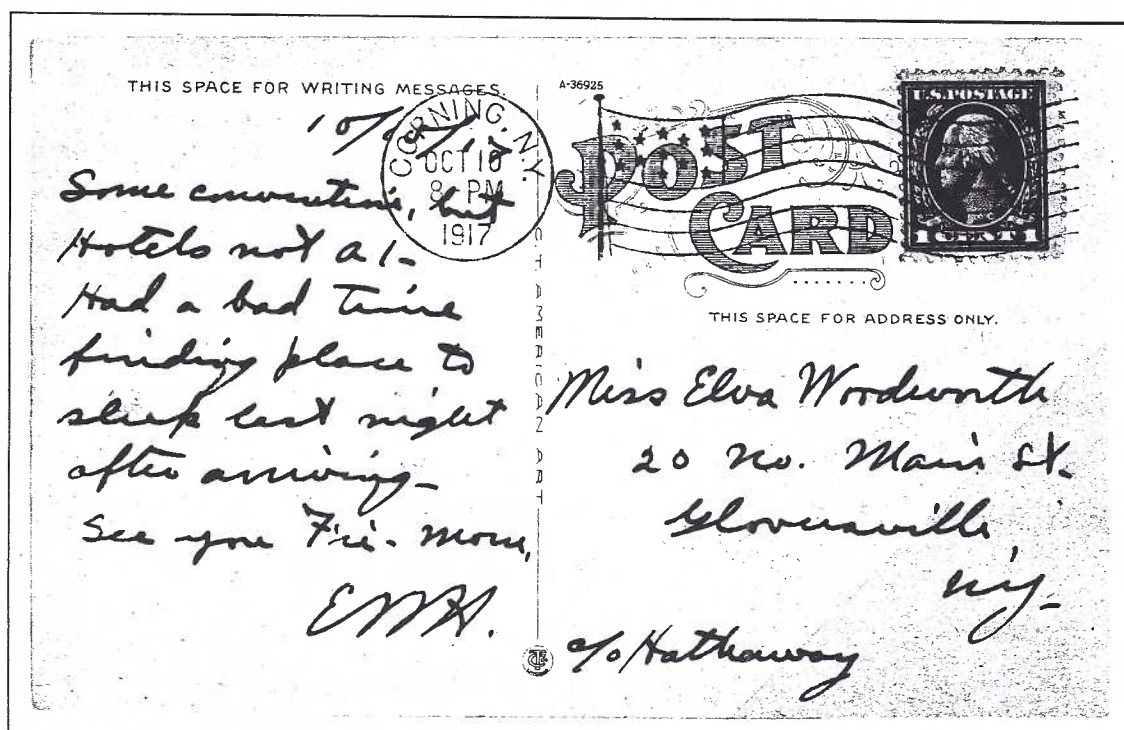 THIS SPACE FOR WRITING MESSAGES.
10/
Some convention, but
Hotels not A1-
Had a bad time
finding place to
sleep last night
after arriving-
See you Fri- morn,
EMH.
CORNING, N.Y.
OCT 10
8 PM
1917
CT AMERICAN ART
A-36925
POST
CARD
U.S. POSTAGE
1 CENT 1
THIS SPACE FOR ADDRESS ONLY.
Miss Elva Wordworth
20 No. Main St.
Gloversville,
NY-
c/o Hathaway